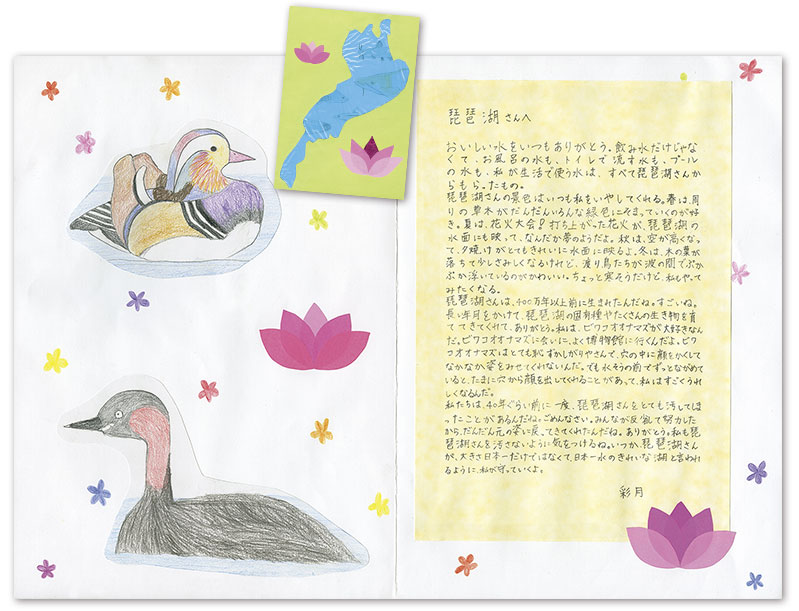 琵琶湖さんへ
おいしい水をいつもありがとう。飲み水だけじゃな
くて、お風呂の水も、トイレで流す水も、プール
の水も、私が生活で使う水は、すべて琵琶湖さん
からもらったもの。
琵琶湖さんの景色はいつも私をいやしてくれる。春は、周
りの草木がだんだんいろんな緑色にそまっていくのが好
き。夏は、花火大会!打ち上がった花火が、琵琶湖の
水面にも映って、なんだか夢のようだよ。秋は、空が高くなっ
て、夕焼けがとてもきれいに水面に映るよ。冬は、木の葉が
落ちて少しさみしくなるけれど、渡り鳥たちが波の間でぷか
ぷか浮いているのがかわいい。ちょっと寒そうだけど、私もやって
みたくなる。
琵琶湖さんは、400万年以上前に生まれたんだね。すごいね。
長い年月をかけて、琵琶湖の固有種やたくさんの生き物を育
ててきてくれて、ありがとう。私は、ビワコオオナマズが大好きなん
だ。ビワコオオナマズに会いに、よく博物館に行くんだよ。ビワ
コオオナマズはとても恥ずかしがりやさんで、穴の中に顔をかくして
なかなか姿をみせてくれないんだ。でも水そうの前でずっとながめて
いると、たまに穴から顔を出してくれることがあって、私はすごくうれ
しくなるんだ。
私たちは、40年ぐらい前に一度、琵琶湖さんをとても汚してしま
ったことがあるんだね。ごめんなさい。みんなが反省して努力した
から、だんだん元の姿に戻ってきてくれたんだね。ありがとう。私も琵
琶湖さんを汚さないように気をつけるね。いつか、琵琶湖さん
が、大きさ日本一だけではなくて、日本一水のきれいな湖と言われ
るように、私が守っていくよ。
彩月